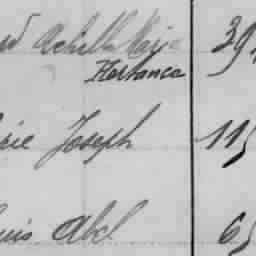 Achille Marie 39
Hortance
rie Joseph 115
uis Abel 65